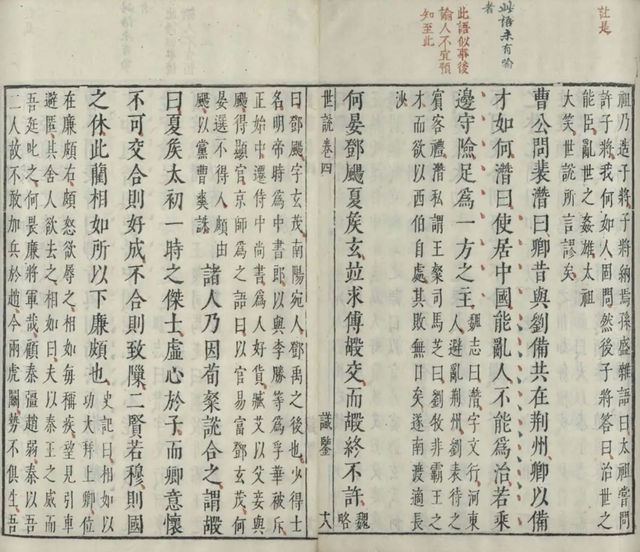 註是
此語似事後
論人不宜預
知至此
此語未有喻
者
祖乃造子將子將納焉孫盛雜語曰太祖嘗問
許子將我何如人固問然後子將答曰治世之
能臣亂世之姦雄太祖
大笑世說所言謬矣
曹公問裴潛曰卿昔與劉備共在荆州卿以備
才如何潛曰使居中國能亂人不能爲治若乘
邊守險足爲一方之主
魏志曰潛字文行河東
人避亂荆州劉表待之
賓客禮潛私謂王粲司馬芝曰劉牧非霸王之
木而欲以西伯自處其敗無日矣遂南渡適長
沙
何晏鄧颺夏矦玄竝求傅嘏交而嘏終不許
魏
略
世説卷四
識鑒
大
曰鄧颺字玄茂南陽宛人鄧禹之後也少得士
名明帝時爲中書郎以與李勝等爲浮華被斥
正始中遷侍中尚書爲人好貨臧艾以父妾與
颺得顯官京師爲之語曰以官易富鄧玄茂何
晏選不得人頗由
颺以黨曹爽誅
諸人乃因荀粲說合之謂嘏
曰夏矦太初一時之傑士虛心於子而卿意懷
不可交合則好成不合則致隟二賢若穆則國
之休此藺相如所以下廉頗也
史記曰相如以
功大拜上卿位
在廉頗右頗怒欲辱之相如每稱疾望見引車
避匿其舍人欲去之相如曰夫以秦王之威而
吾廷叱之何畏廉將軍哉顧秦彊趙弱秦以吾
二人故不敢加兵於趙今兩虎鬭勢不俱生吾